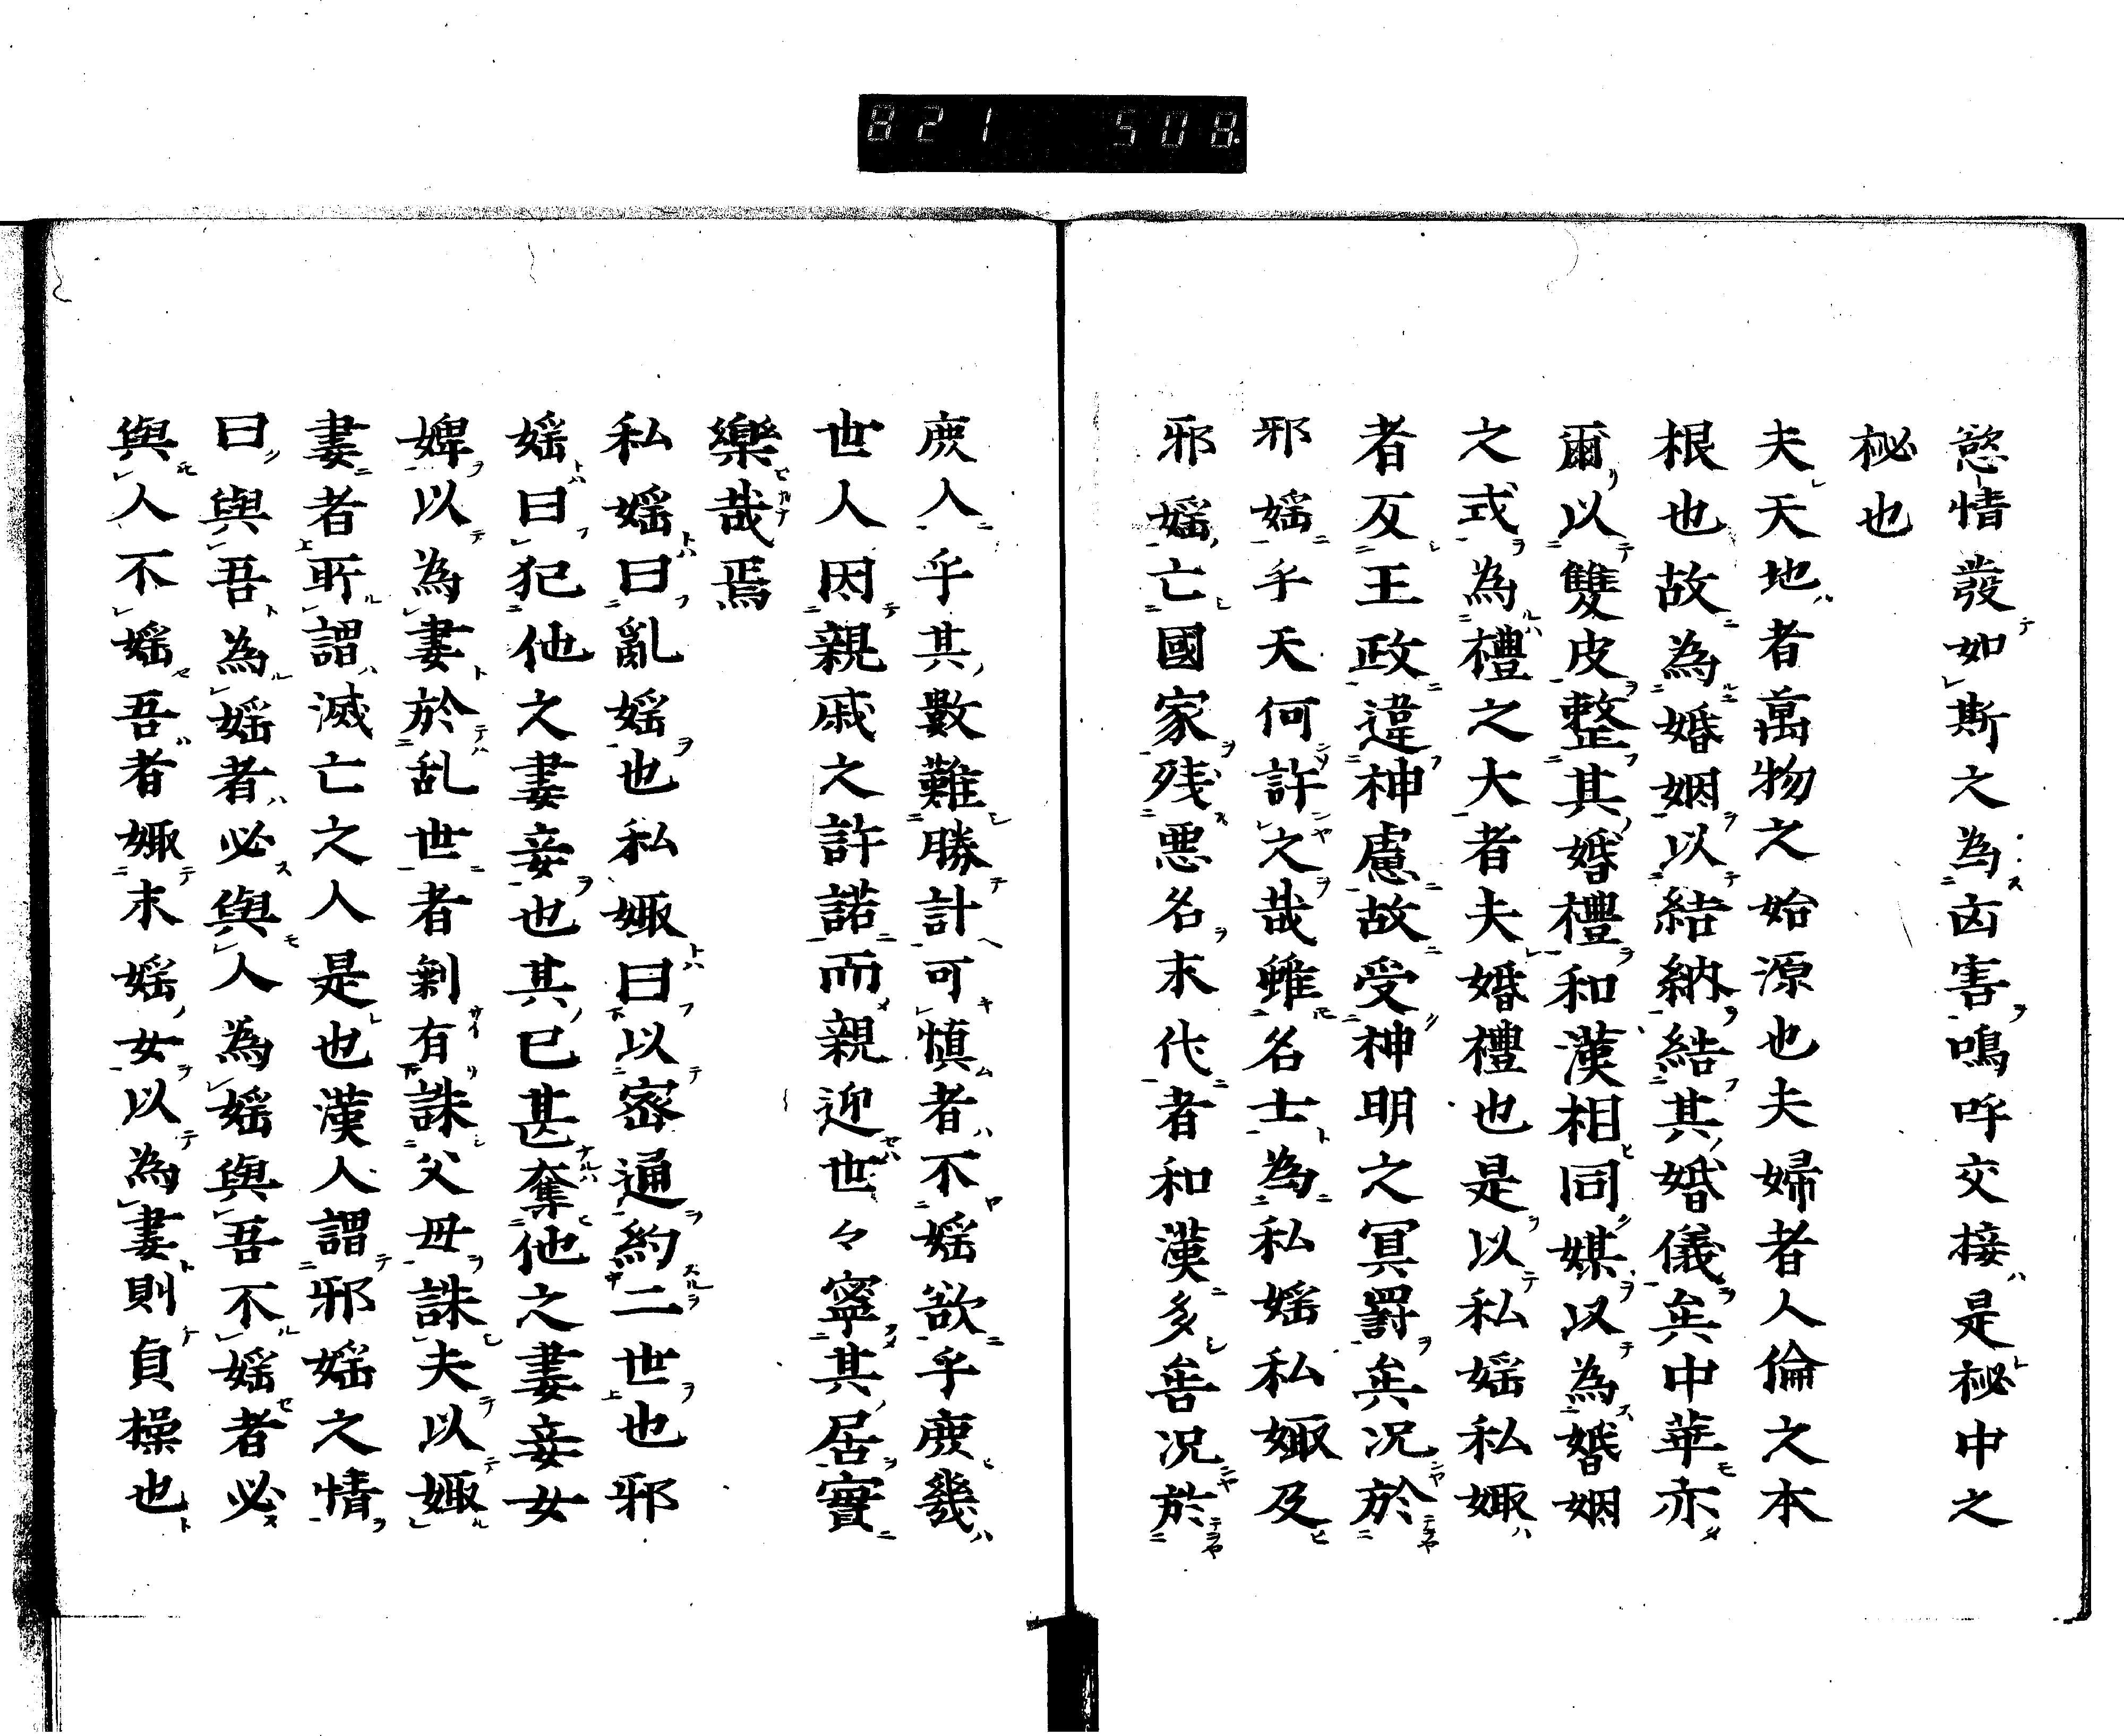 821 508
慾情發如斯之為凶害嗚呼交接是秘中之
秘也
夫天地者萬物之始源也夫婦者人倫之本
根也故為婚姻以結納結其婚儀矣中華亦
爾以雙皮整其婚禮和漢相同媒以為婚姻
之式為禮之大者夫婚禮也是以私婬私娵
者反王政違神慮故受神明之冥罸矣况於
邪婬乎天何許之哉雖名士為私婬私娵及
邪婬亡國家残悪名末代者和漢多矣况於
庶人乎其數難勝計可慎者不婬欲乎庶幾
世人因親戚之許諾而親迎世々寧其居實
樂哉焉
私婬曰亂婬也私娵曰以密通約二世也邪
婬曰犯他之妻妾也其已甚奪他之妻妾女
婢以為妻於乱世者剰有誅父母誅夫以娵
妻者所謂滅亡之人是也漢人謂邪婬之情
曰與吾為婬者必與人為婬與吾不婬者必
與人不婬吾者娵末婬女以為妻則貞操也